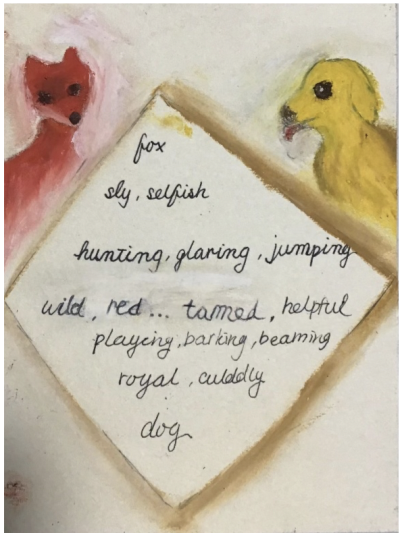 fox
sly, selfish
hunting, glaring, jumping
wild, red... tamed, helpful
playing, barking, beaming
royal, culddly
dog